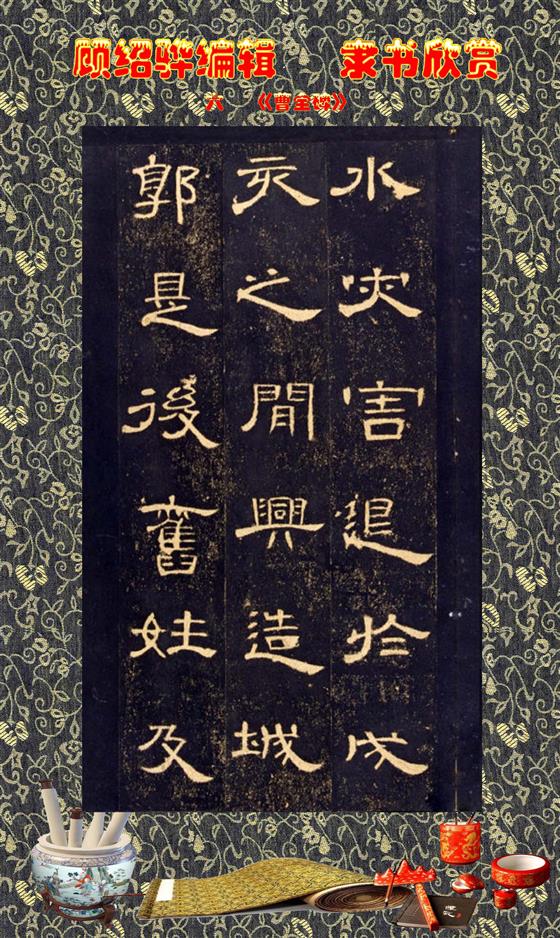 顾绍骅编辑 隶书欣赏
六 《曹全碑》
水灾害退於戌
亥之間興造城
郭是後舊姓及